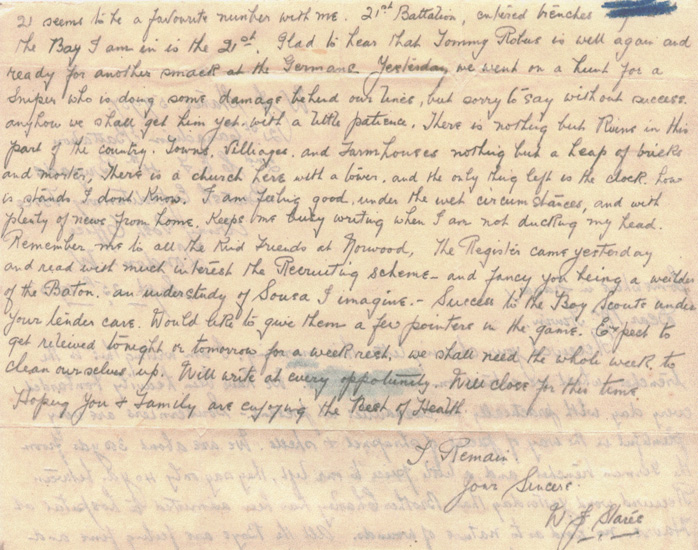 21 seems to be a favourite number with me. 21st Battalion, entered trenches
the Bay I am in is the 21st. Glad to hear that Tommy is well again and
ready for another smack at the Germans. Yesterday we went on a hunt for a
Sniper who is doing some damage behind our lines, but sorry to say without success.
anyhow we shall get him yet. with a little patience. There is nothing but Ruins in this
part of the country. Towns. Villiages. and Farmhouses nothing but a heap of bricks
and morter, There is a church here with a tower. and the only thing left is the clock. how
is stands I dont Know. I am feeling good, under the wet circumstances, and with
plenty of news from home. Keeps me busy writing when I am not ducking my head.
Remember me to all the Kind Friends at Norwood, The Register came yesterday
and read with much interest the Recruiting scheme - and fancy you being a weilder
of the Baton. an understudy of Sousa I imagine. - Success to the Boy Scouts under
Your tender care. Would like to give them a few pointers in the game. Expect to
get releived tonight or tomorrow for a week rest, we shall need the whole week. to
clean ourselves up. Will write at every oppotunity. Will close for this time
Hoping You + Family are enjoying the Best of Health
I Remain
Your Sincere.
W. J.